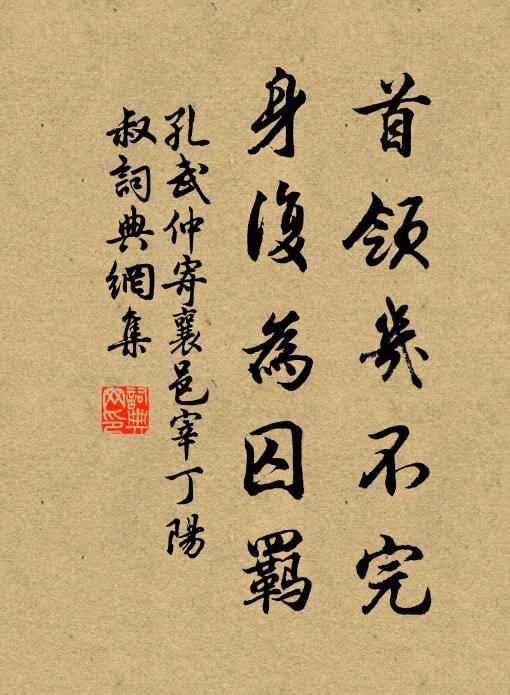 首領幾不完
身復為囚羈
孔武仲寄襄邑宰丁陽
叔詞典網集
詞典